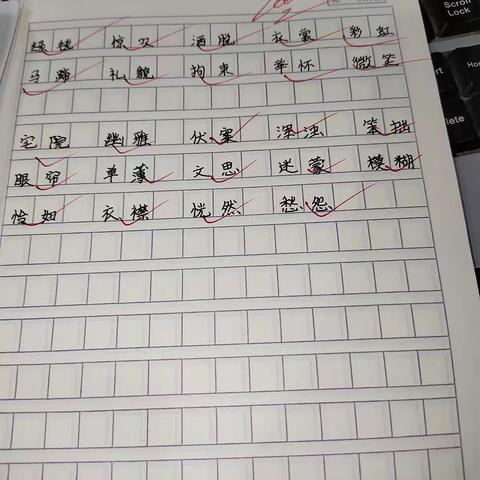 绿毯 惊叹 洒脱 衣裳 彩虹
马蹄 礼貌 拘束 举杯 微笑
宅院 幽雅 伏案 深浊 笨拙
眼帘 单薄 文思 迷蒙 模糊
恰如 衣襟 恍然 愁怨
Scroll Lock